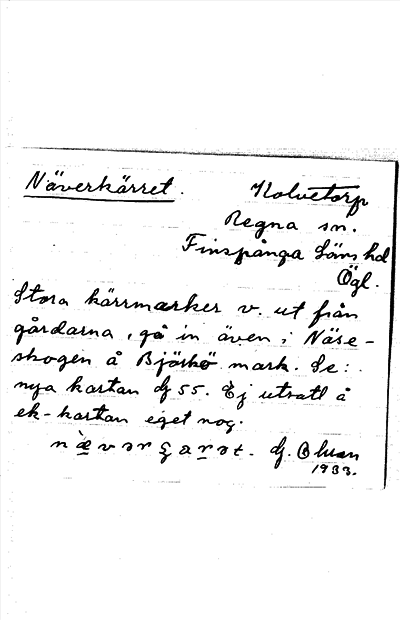 Näverkärret.
Holvetorp
Regna sn.
Finspånga Läns hd
Ögl.
Stora kärrmarker v. ut från
gårdarna, gå in även i Näse-
skogen å Björkö mark. Se:
nya kartan df 55. Ej utsatt å
ek-kartan eget nog.
1933.